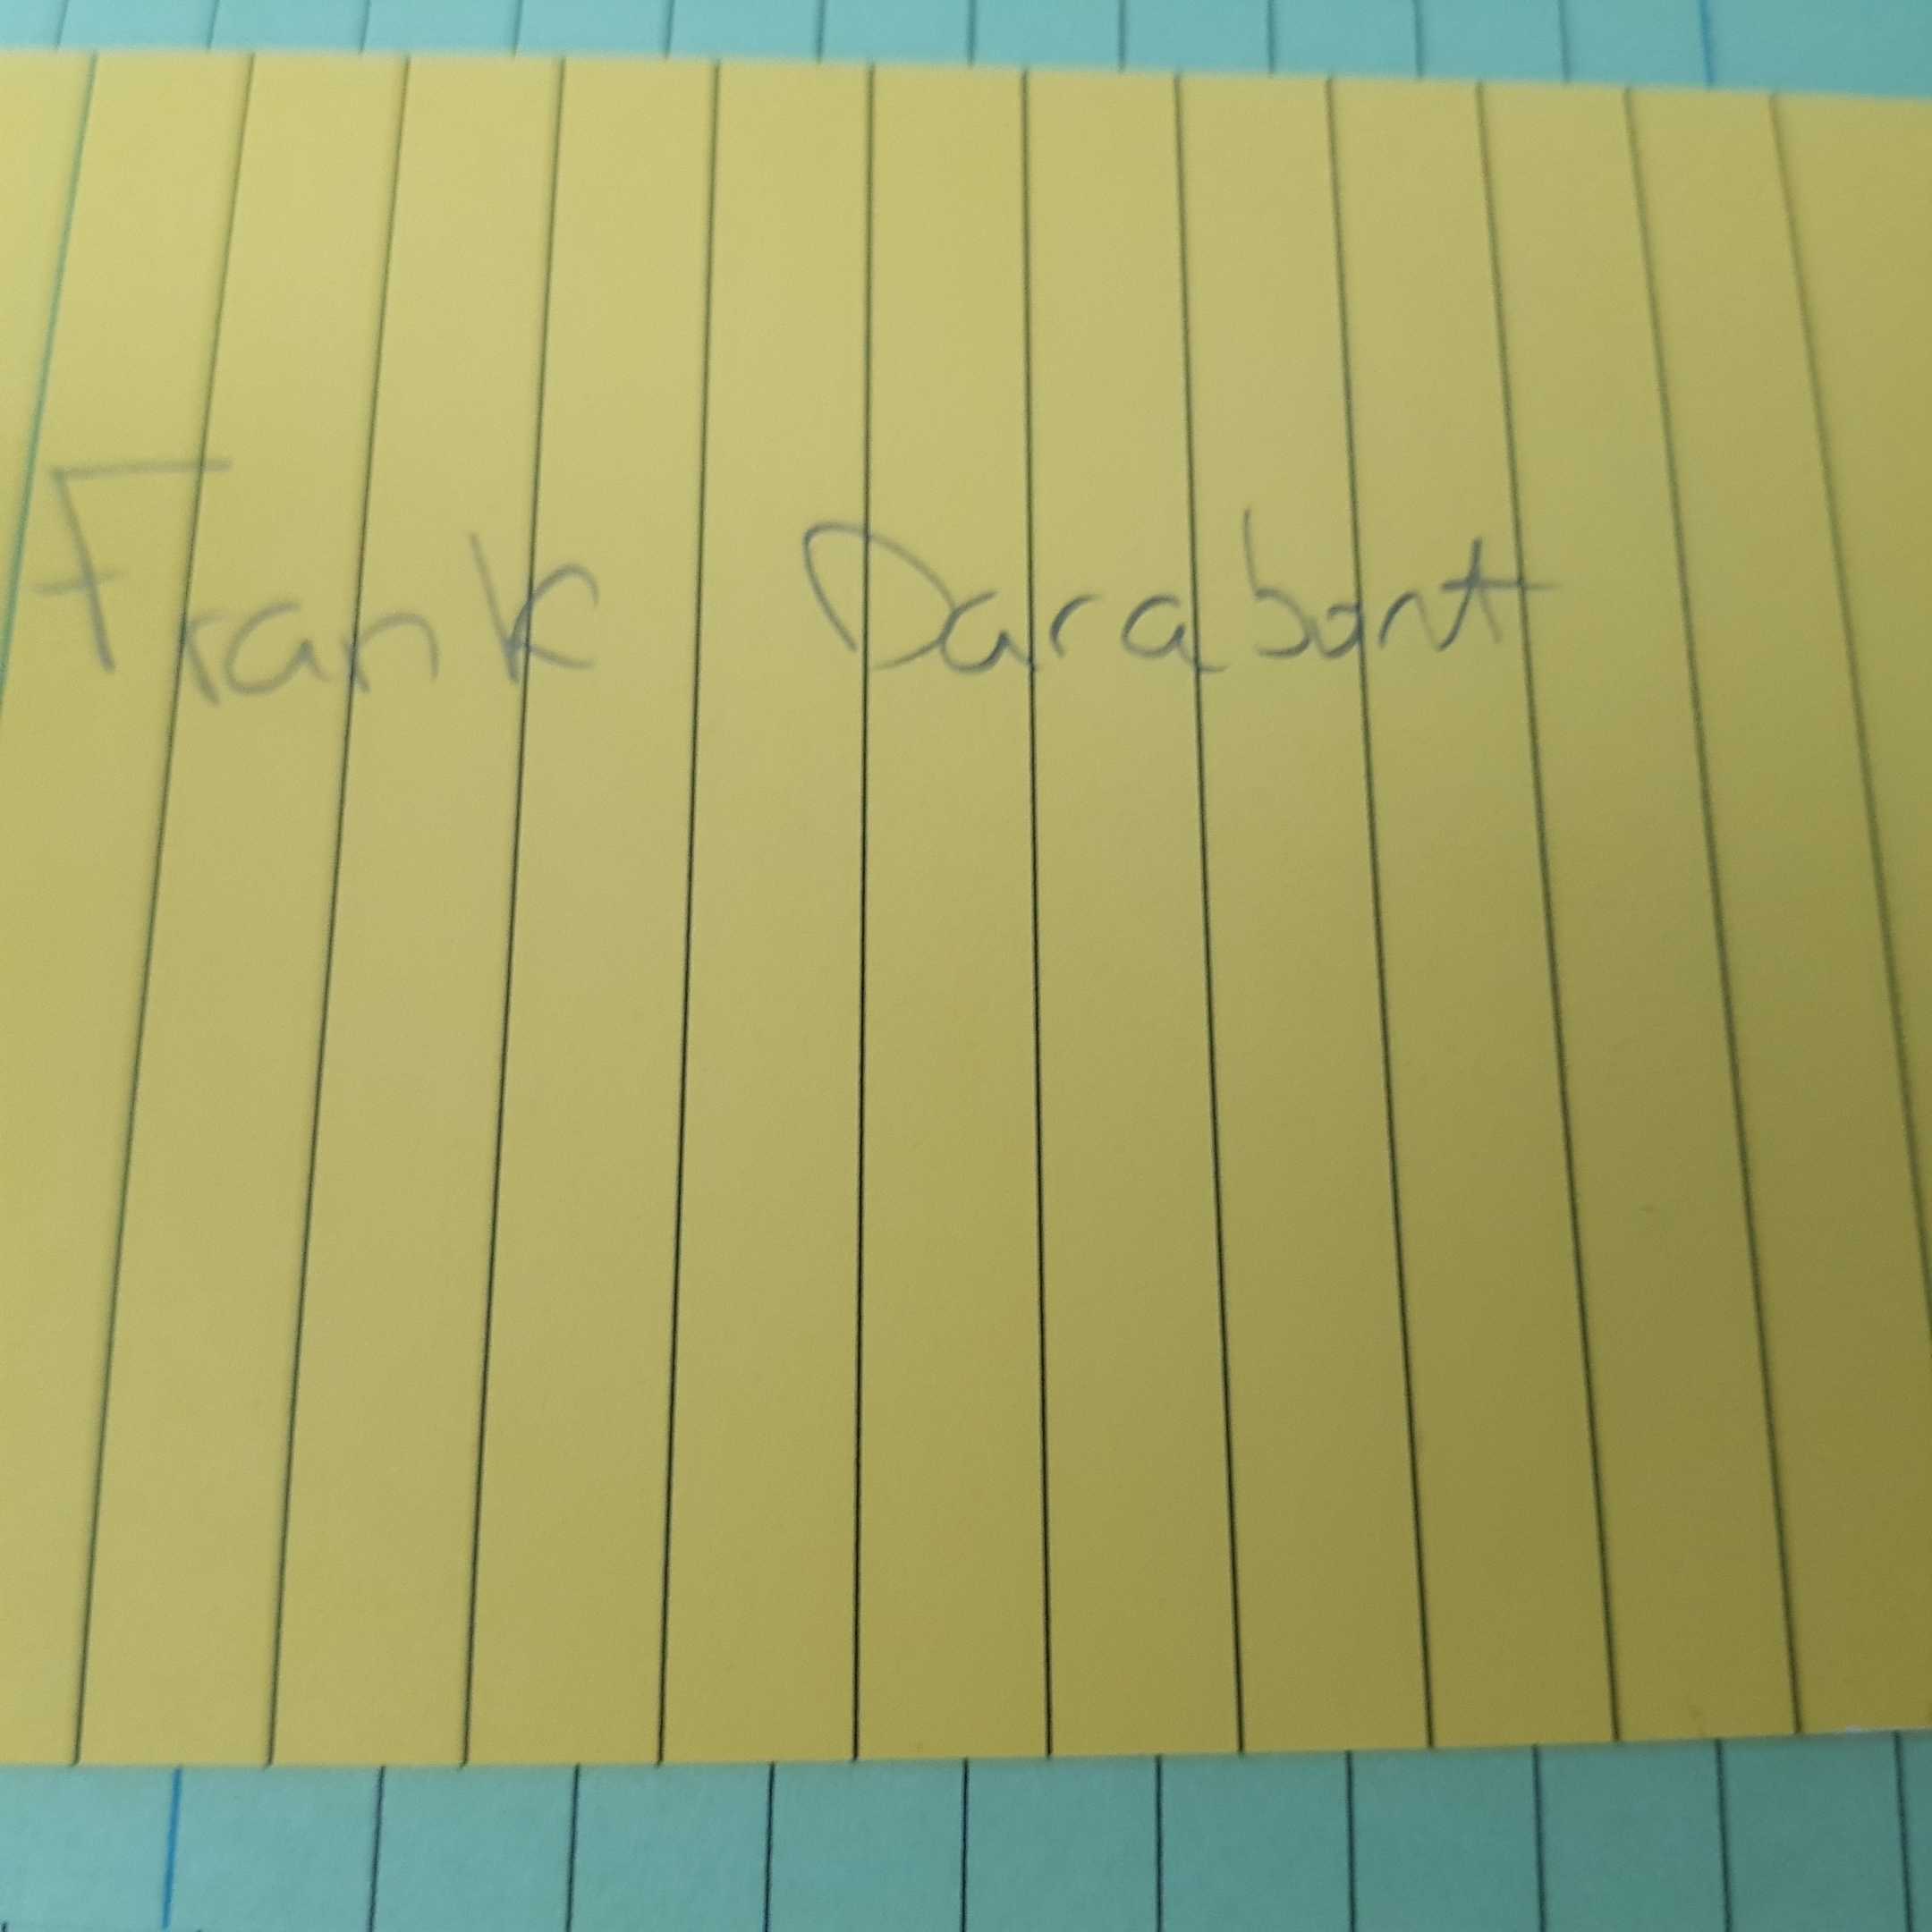 Frank Darabont